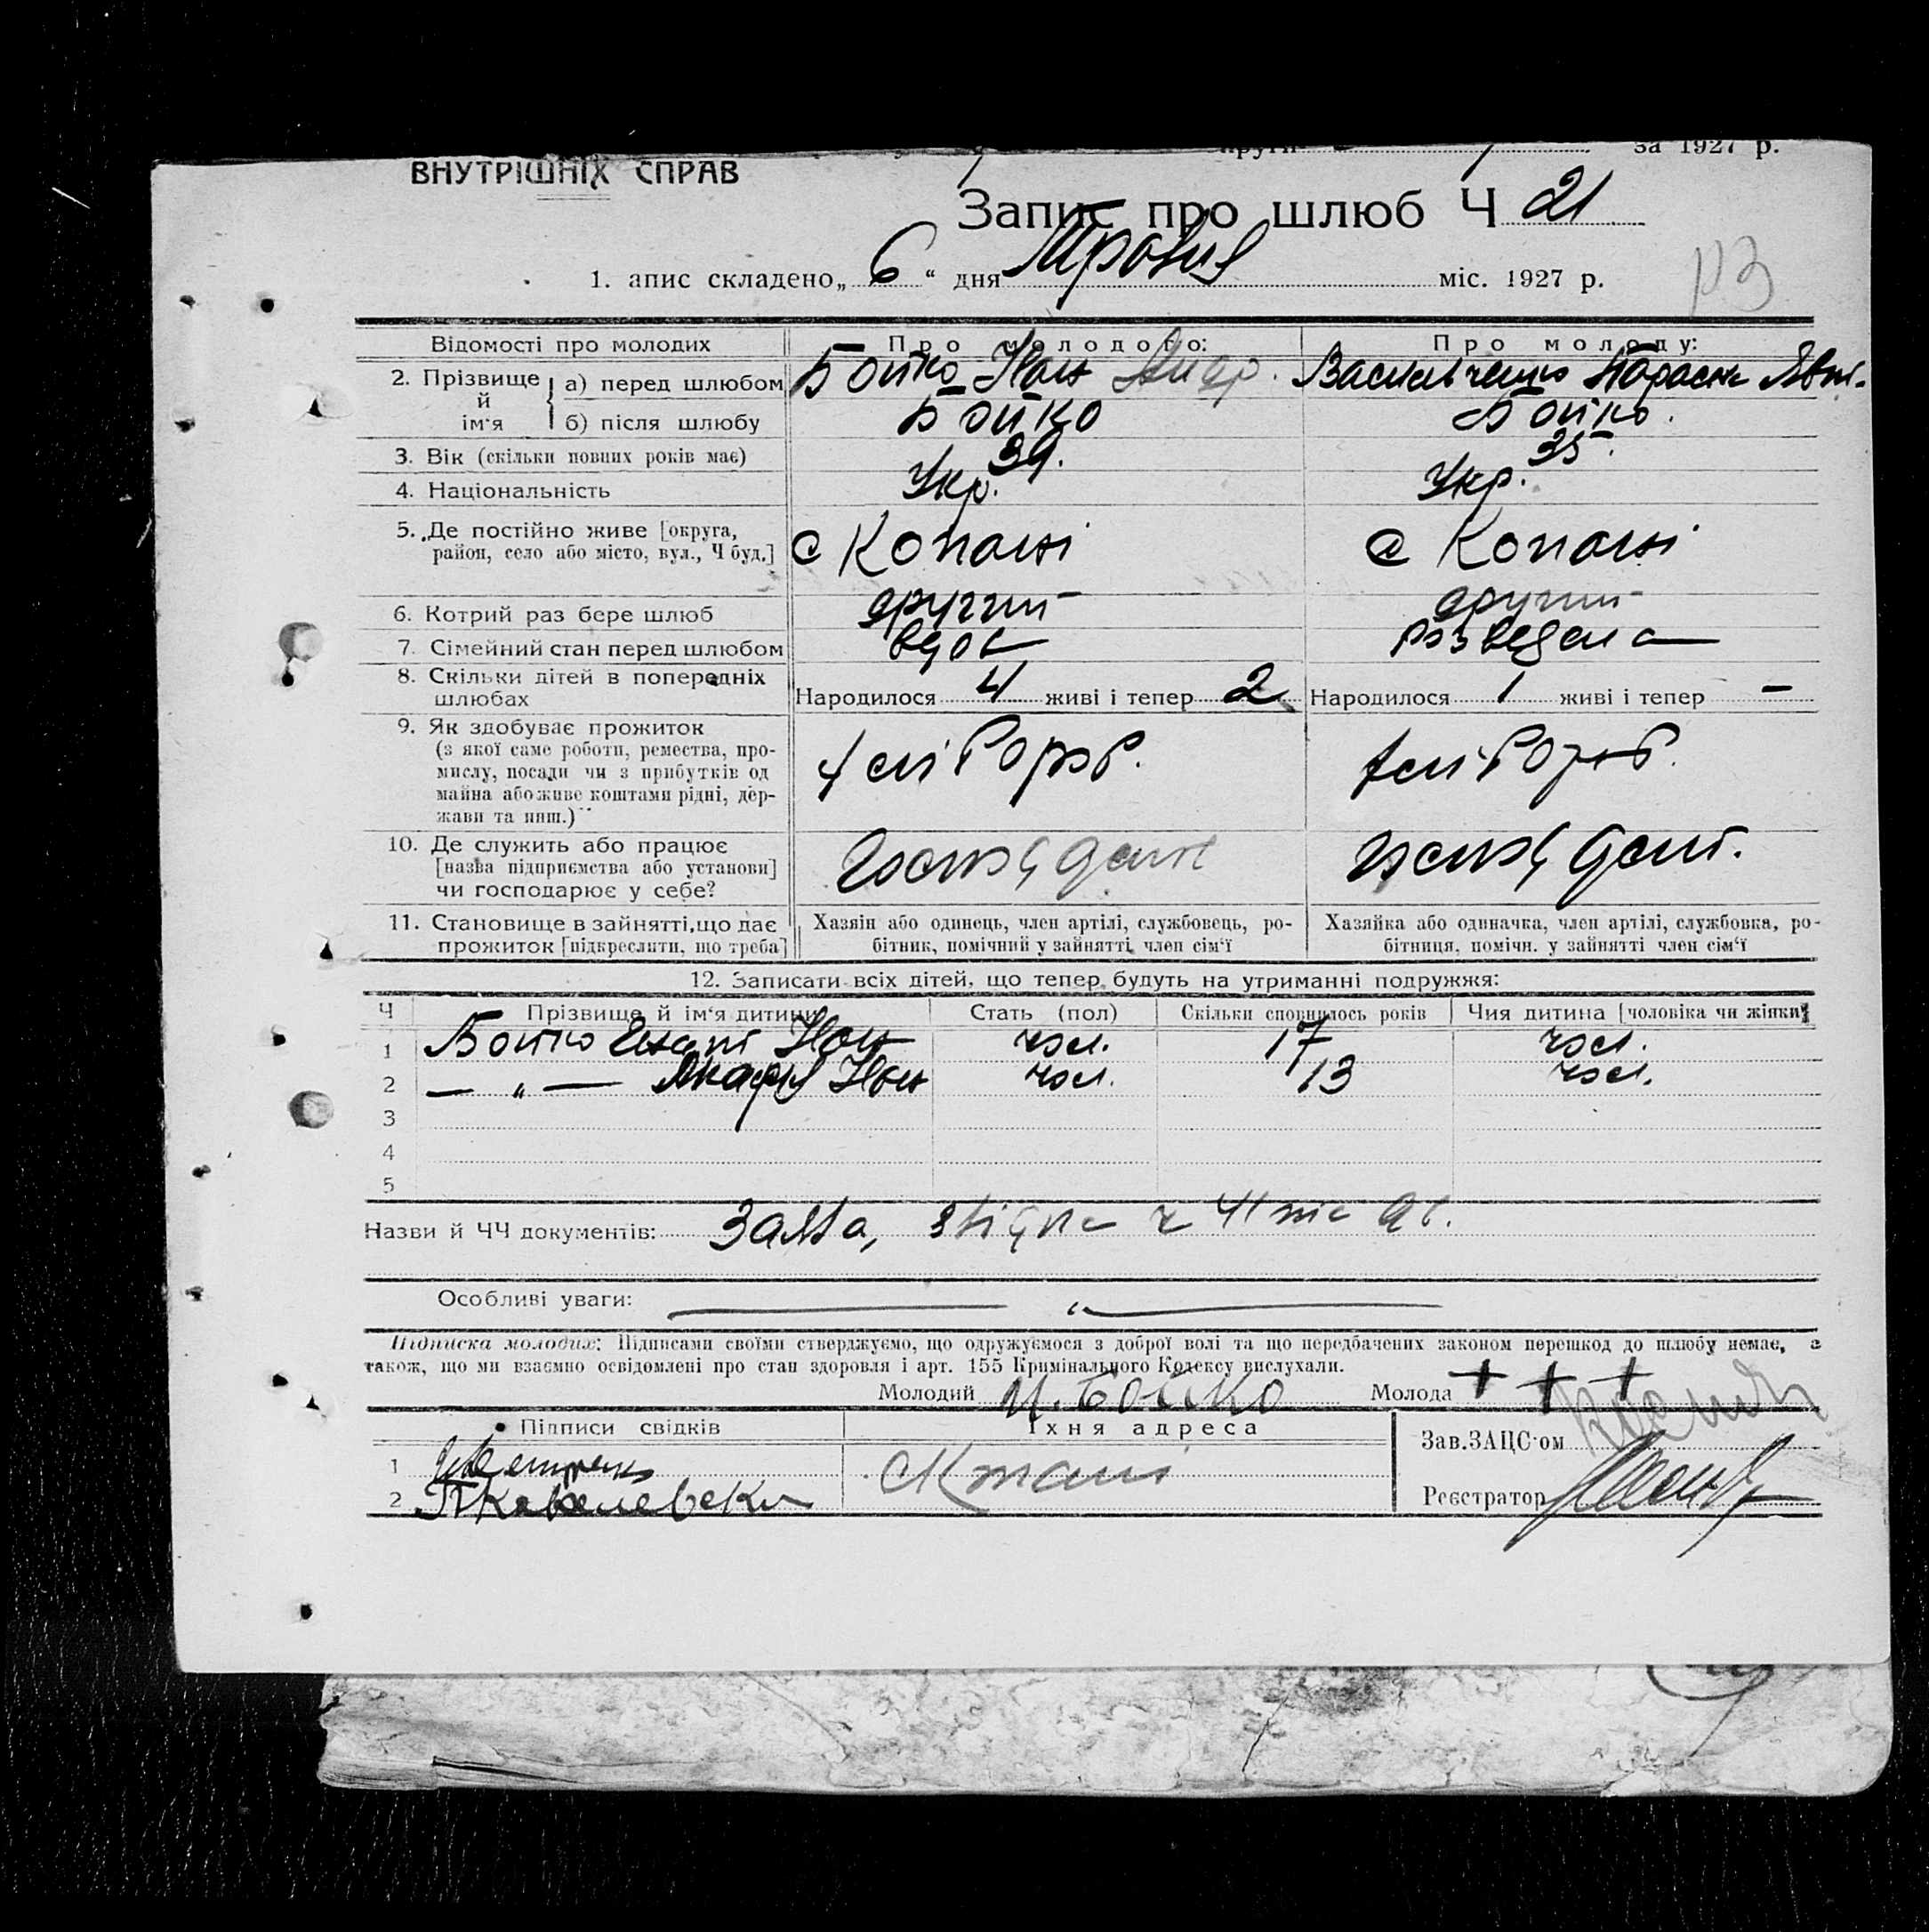 за 1927 р.
ВНУТРІШНІХ СПРАВ
Запис про шлюб Ч 21
1. апис складено „ 6 “ дня Травня міс. 1927 р.
113
Відомості про молодих Про молодого: Про молоду:
2. Прізвище й ім'я а) перед шлюбом Бойко Іван Андр. Васильченко Параска
б) після шлюбу Бойко Бойко.
3. Вік (скільки повних років має) 39. 35.
4. Національність Укр. Укр.
5. Де постійно живе [округа, район, село або місто, вул., Ч буд.] с Копані с Копані
6. Котрий раз бере шлюб другий другий
7. Сімейний стан перед шлюбом вдов розведена
8. Скільки дітей в попередніх шлюбах Народилося 4 живі і тепер 2 Народилося 1 живі і тепер –
9. Як здобуває прожиток
(з якої саме роботи, ремества, промислу, посади чи з прибутків од майна або живе коштами рідні, держави та инш.) хлібороб. хлібороб.
10. Де служить або працює
[назва підприємства або установи]
чи господарює у себе?
11. Становище в зайнятті, що дає прожиток [підкреслити, що треба] Хазяїн або одинець, член артілі, службовець, робітник, помічний у зайнятті член сім'ї Хазяйка або одиначка, член артілі, службовка, робітниця, помічн. у зайнятті член сім'ї
12. Записати всіх дітей, що тепер будуть на утриманні подружжя:
Ч Прізвище й ім'я дитини Стать (пол) Скільки сповнилось років Чия дитина [чоловіка чи жінки]
1 Бойко Іван чол. 17 чол.
2 — „ — Іван чол. 13 чол.
3
4
5
Назви й ЧЧ документів: Заява,
Особливі уваги: — „ —
Підписка молодих: Підписами своїми стверджуємо, що одружуємося з доброї волі та що передбачених законом перешкод до шлюбу немає, а
також, що ми взаємно освідомлені про стан здоровля і арт. 155 Кримінального Кодексу вислухали.
Молодий И. Бойко Молода + + +
Підписи свідків Їхня адреса Зав. ЗАЦС'ом
1
2 Реєстратор